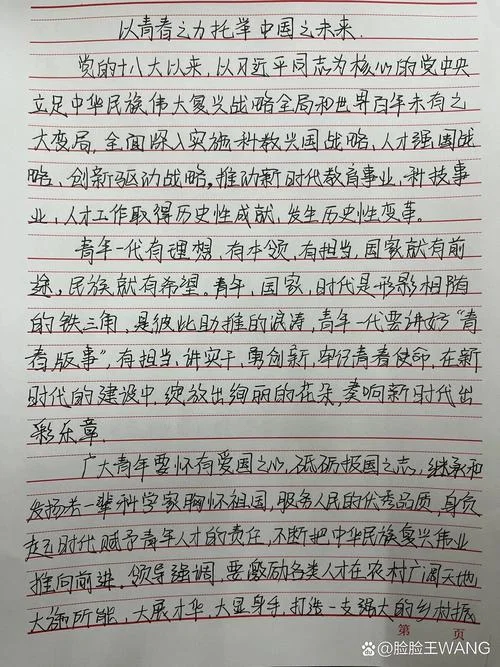 以青春之力托举中国之未来.
党的十八大以来,以习近平同志为核心的党中央
立足中华民族伟大复兴战略全局和世界百年未有之
大变局,全面深入实施科教兴国战略、人才强国战
略、创新驱动战略,推动新时代教育事业,科技事
业,人才工作取得历史性成就,发生历史性变革。
青年一代有理想,有本领,有担当,国家就有前
途,民族就有希望。青年,国家,时代是形影相随
的铁三角,是彼此助推的浪涛,青年一代要讲好“青
春版事”,有担当,讲实干,勇创新,牢记青春使命,在新
时代的建设中,绽放出绚丽的花朵,奏响新时代出
彩乐章.
广大青年要怀有爱国之心,砥砺报国之志,继承和
发扬老一辈科学家胸怀祖国,服务人民的优秀品质,肩负
起时代赋予青年人才的责任,不断把中华民族复兴伟业
推向前进。领导强调,要激励各类人才在农村广阔天地
大施所能,大展才华,大显身手,打造一支强大的乡村振
第 页
Baidu百科 @脸脸王WANG